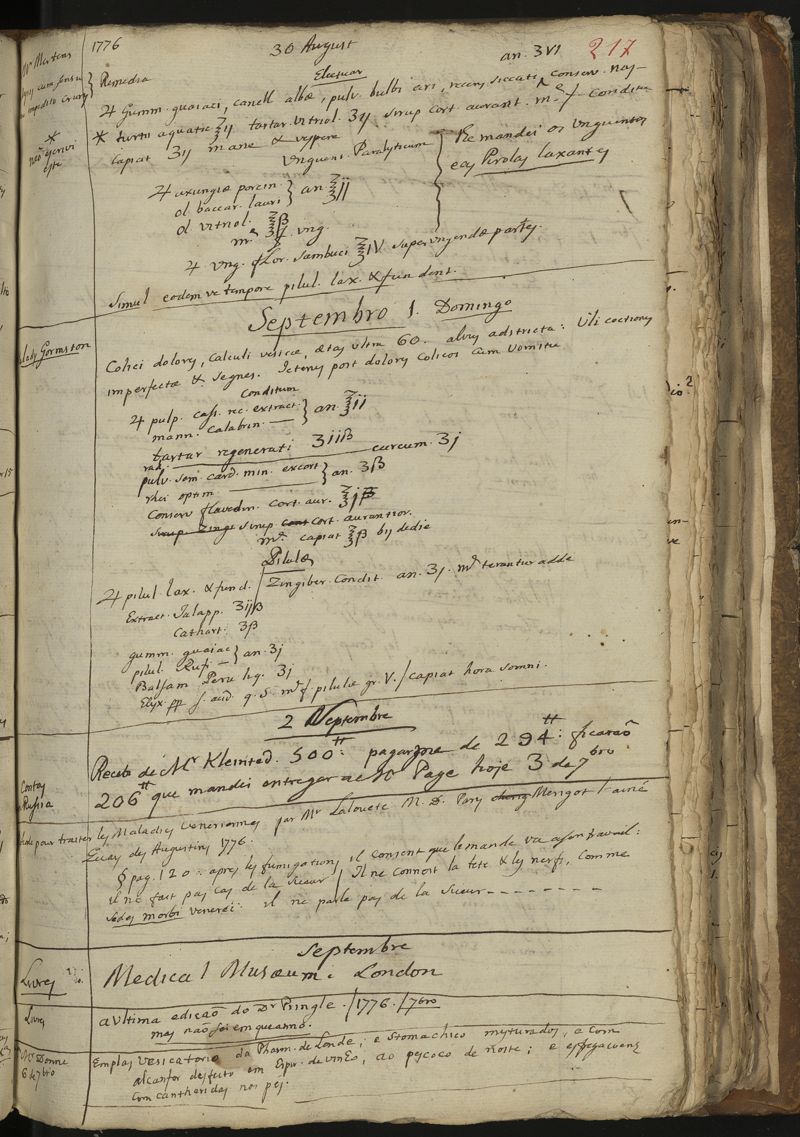 1776 30 August an. 3VI 217
Electuar
Remedia
♃ Gumm. guaiaci, canell albæ, pulv. bulbi ari, recens siccati, conserv. nas-
* turtii aquatic ʒij tartar. vitriol. ʒij sirup cort. aurant. Condituｍ
capiat ʒij mane & vespere
Unguent. Paralyticum
Remandei os Unguentos
eas Pirolas laxantes
♃ axungiæ porcin.
ol. baccar. lauri } an. ℥ij
ol vitriol. ℥ß
m. f. ung.
♃ Ung. flor. Sambuci ℥IV superungendæ partes.
Simul eodemve tempore pilul. lax. & fundent.
* não escrivi este
Septembro 1. Domingo
Lady Gormston
Colici dolores, calculi vesicæ, ætas ultra 60. alvus adstricta: Uli coctiones
imperfectæ & segnes. Icterus post dolores Colicos cum Vomitu
Conditum
♃ pulp. cass. rec. extract.
mann. calabrin. } an. ℥ij
tartar regenerati ʒijß
rad. curcum. ʒj
pulv. sem. card. min. excort
rhei optim } an. ʒß
Conserv flavedin. cort. aur. ℥jß
Sirup Zingi sirup cort. aurantior.
m. capiat ℥ß bis de die
Pilulæ
♃ pilul lax. & fund. / Zingiber. Condit. an. ʒj. terantur adde
Extract. Jalapp. ʒijß
Cathart: ʒß
gumm. guaiac
pilul. Rufi } an. ʒj
Balsam Peru liq. ʒj
Elix. pp s. acid. q. s. m. f. pilulæ gr. V. / capiat hora somni.
2 Septembre
Contas Russia
Recebi de Mr Kleinted. 500tt pagar de 294tt: ficarão
206tt que mandei entregar ao Mr Page hoje 3 de 7bro
pour traiter les Maladies Veneriennes par Mr Lalouete M. D. Pary chez Merigot l'ainé
Quay des Augustins 1776.
§ pag. 120. apres les fumigations il Consent que le malade
il ne fait pas cas de la Sueur / Il ne connoit la tete & les nerfs, Comme
sedes morbi venerei: il ne parle pas de la sueur - - - - - - - -
Septembre
Livres Medical Musæum. London
Livres a Ultima edição do Dr Pringle. / 1776. / 7bro
mas não foi em quanno.
6 de 7bro
Emplas Vesicatorio da Pharm. de Londe; e Stomachico mysturados, e com
alcanfor desfeito em Espir. de vinho, ao pescoço de noite; e
com cantheridas nos pes.